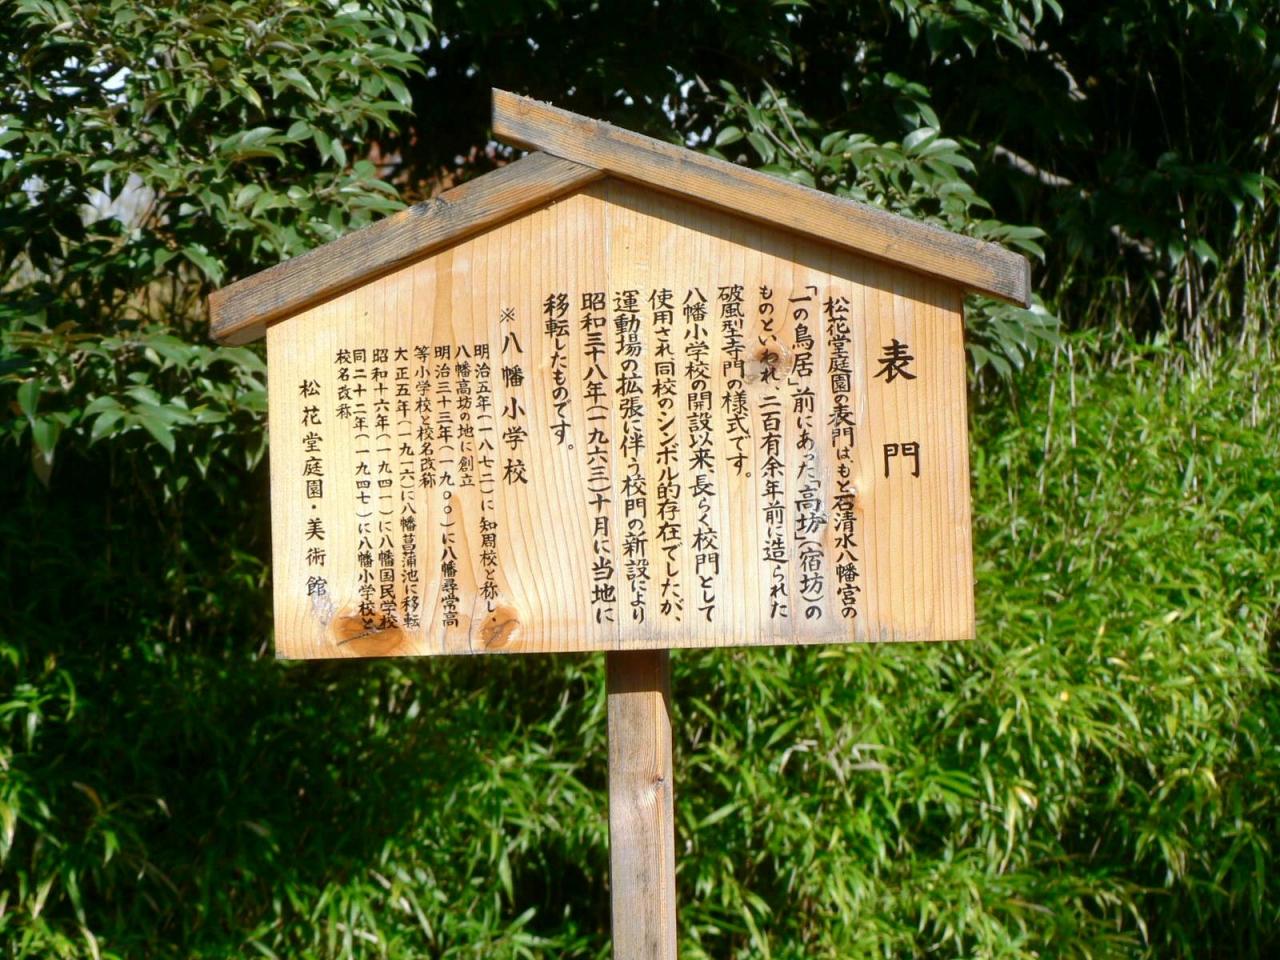 表門
松花堂庭園の表門は、もと石清水八幡宮の
「一の鳥居」前にあった「高坊」(宿坊)の
ものといわれ、二百有余年前に造られた
破風型寺門の様式です。
八幡小学校の開設以来、長らく校門として
使用され、同校のシンボル的存在でしたが、
運動場の拡張に伴う校門の新設により
昭和三十八年(一九六三)十月に当地に
移転したものです。
※八幡小学校
明治五年(一八七二)に知周校と称し・
八幡高坊の地に創立
明治三十三年(一九〇〇)に八幡尋常高
等小学校と校名改称
大正五年(一九一六)に八幡菖蒲池に移転
昭和十六年(一九四一)に八幡国民学校
同二十二年(一九四七)に八幡小学校と
校名改称
松花堂庭園・美術館